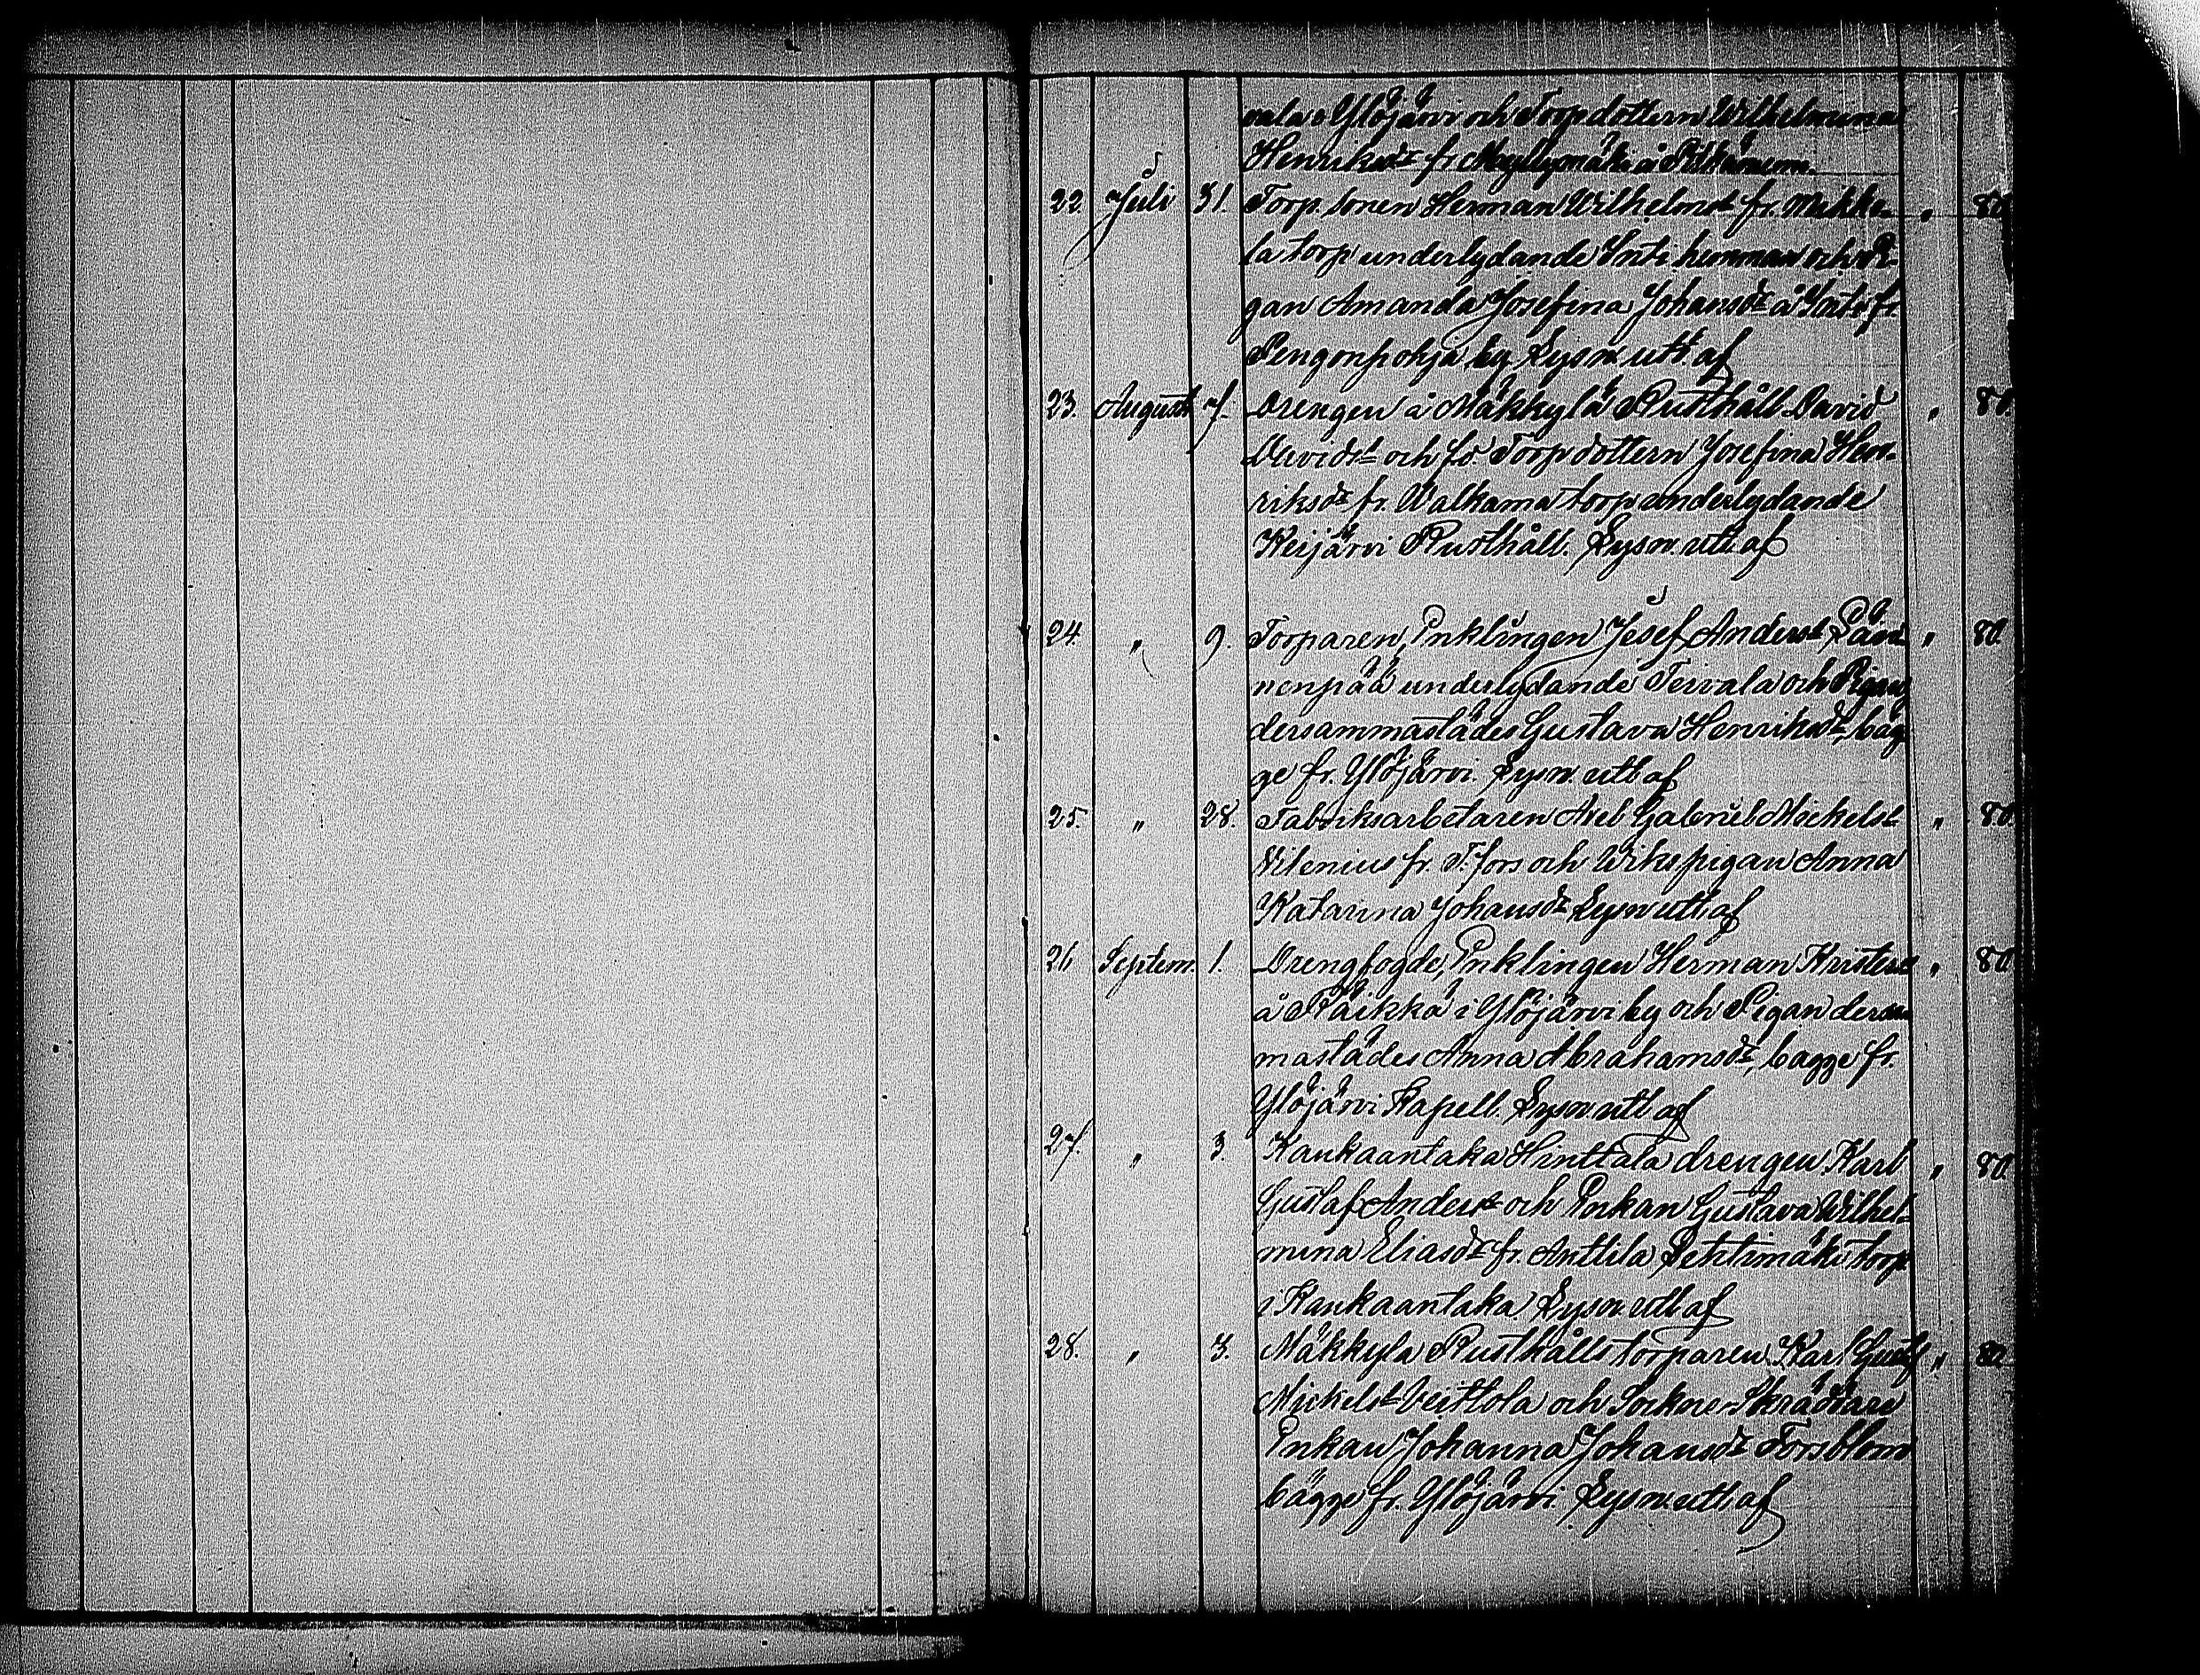 vala i Ylöjärvi och Torpdottern Wilhelmina
Henriksdr fr. Myllymäki å Pitkäniemi.
22. Juli 31. Torp. sonen Herman Wilhelmst fr. Mikko- „ 80.
la torp underlydande Inti hemman och Pi-
gan Amanda Josefina Johansdr å Inti fr.
Pengonpohja by Lysn. utt. af
23. August 7. Drengen å Mäkkylä Rusthåll David „ 80.
Davidst och fd. Torpdottern Josefina Hen-
riksdr fr. Walkama torp underlydande
Keijärvi Rusthåll. Lysn. utt. af
24. „ 9. Torparen, Enklingen Josef Anderst „ 80.
nenpää underlydande Tervala och Pigan
dersammastädes Gustava Henriksdr, bäg-
ge fr. Ylöjärvi. Lysn. utt. af
25. „ 28. Fabriksarbetaren Axel Gabriel Mickelst „ 80.
Vilenius fr. T.fors och Wiks pigan Anna
Katarina Johansdr Lysn. utt. af
26 Septem. 1. Drengfogde, Enklingen Herman Kristers „ 80
å Räikkä i Ylöjärvi by och Pigan dersam
mastädes Anna Abrahamsdr, bägge fr.
Ylöjärvi Kapell. Lysn. utt. af
27. „ 3. Kaukaantaka Hinttala drengen Karl „ 80.
Gustaf Anderst och Enkan Gustava Wilhel-
mina Eliasdr fr. Anttila Lehtimäki torp
i Kaukaantaka. Lysn. utt. af
28. „ 3. Mäkkylä Rusthålls torparen Karl Gustaf „ 80.
Mickelst Veittola och Sockne Skräddare
Enkan Johanna Johansdr Forsblom
bägge fr. Ylöjärvi. Lysn. utt. af